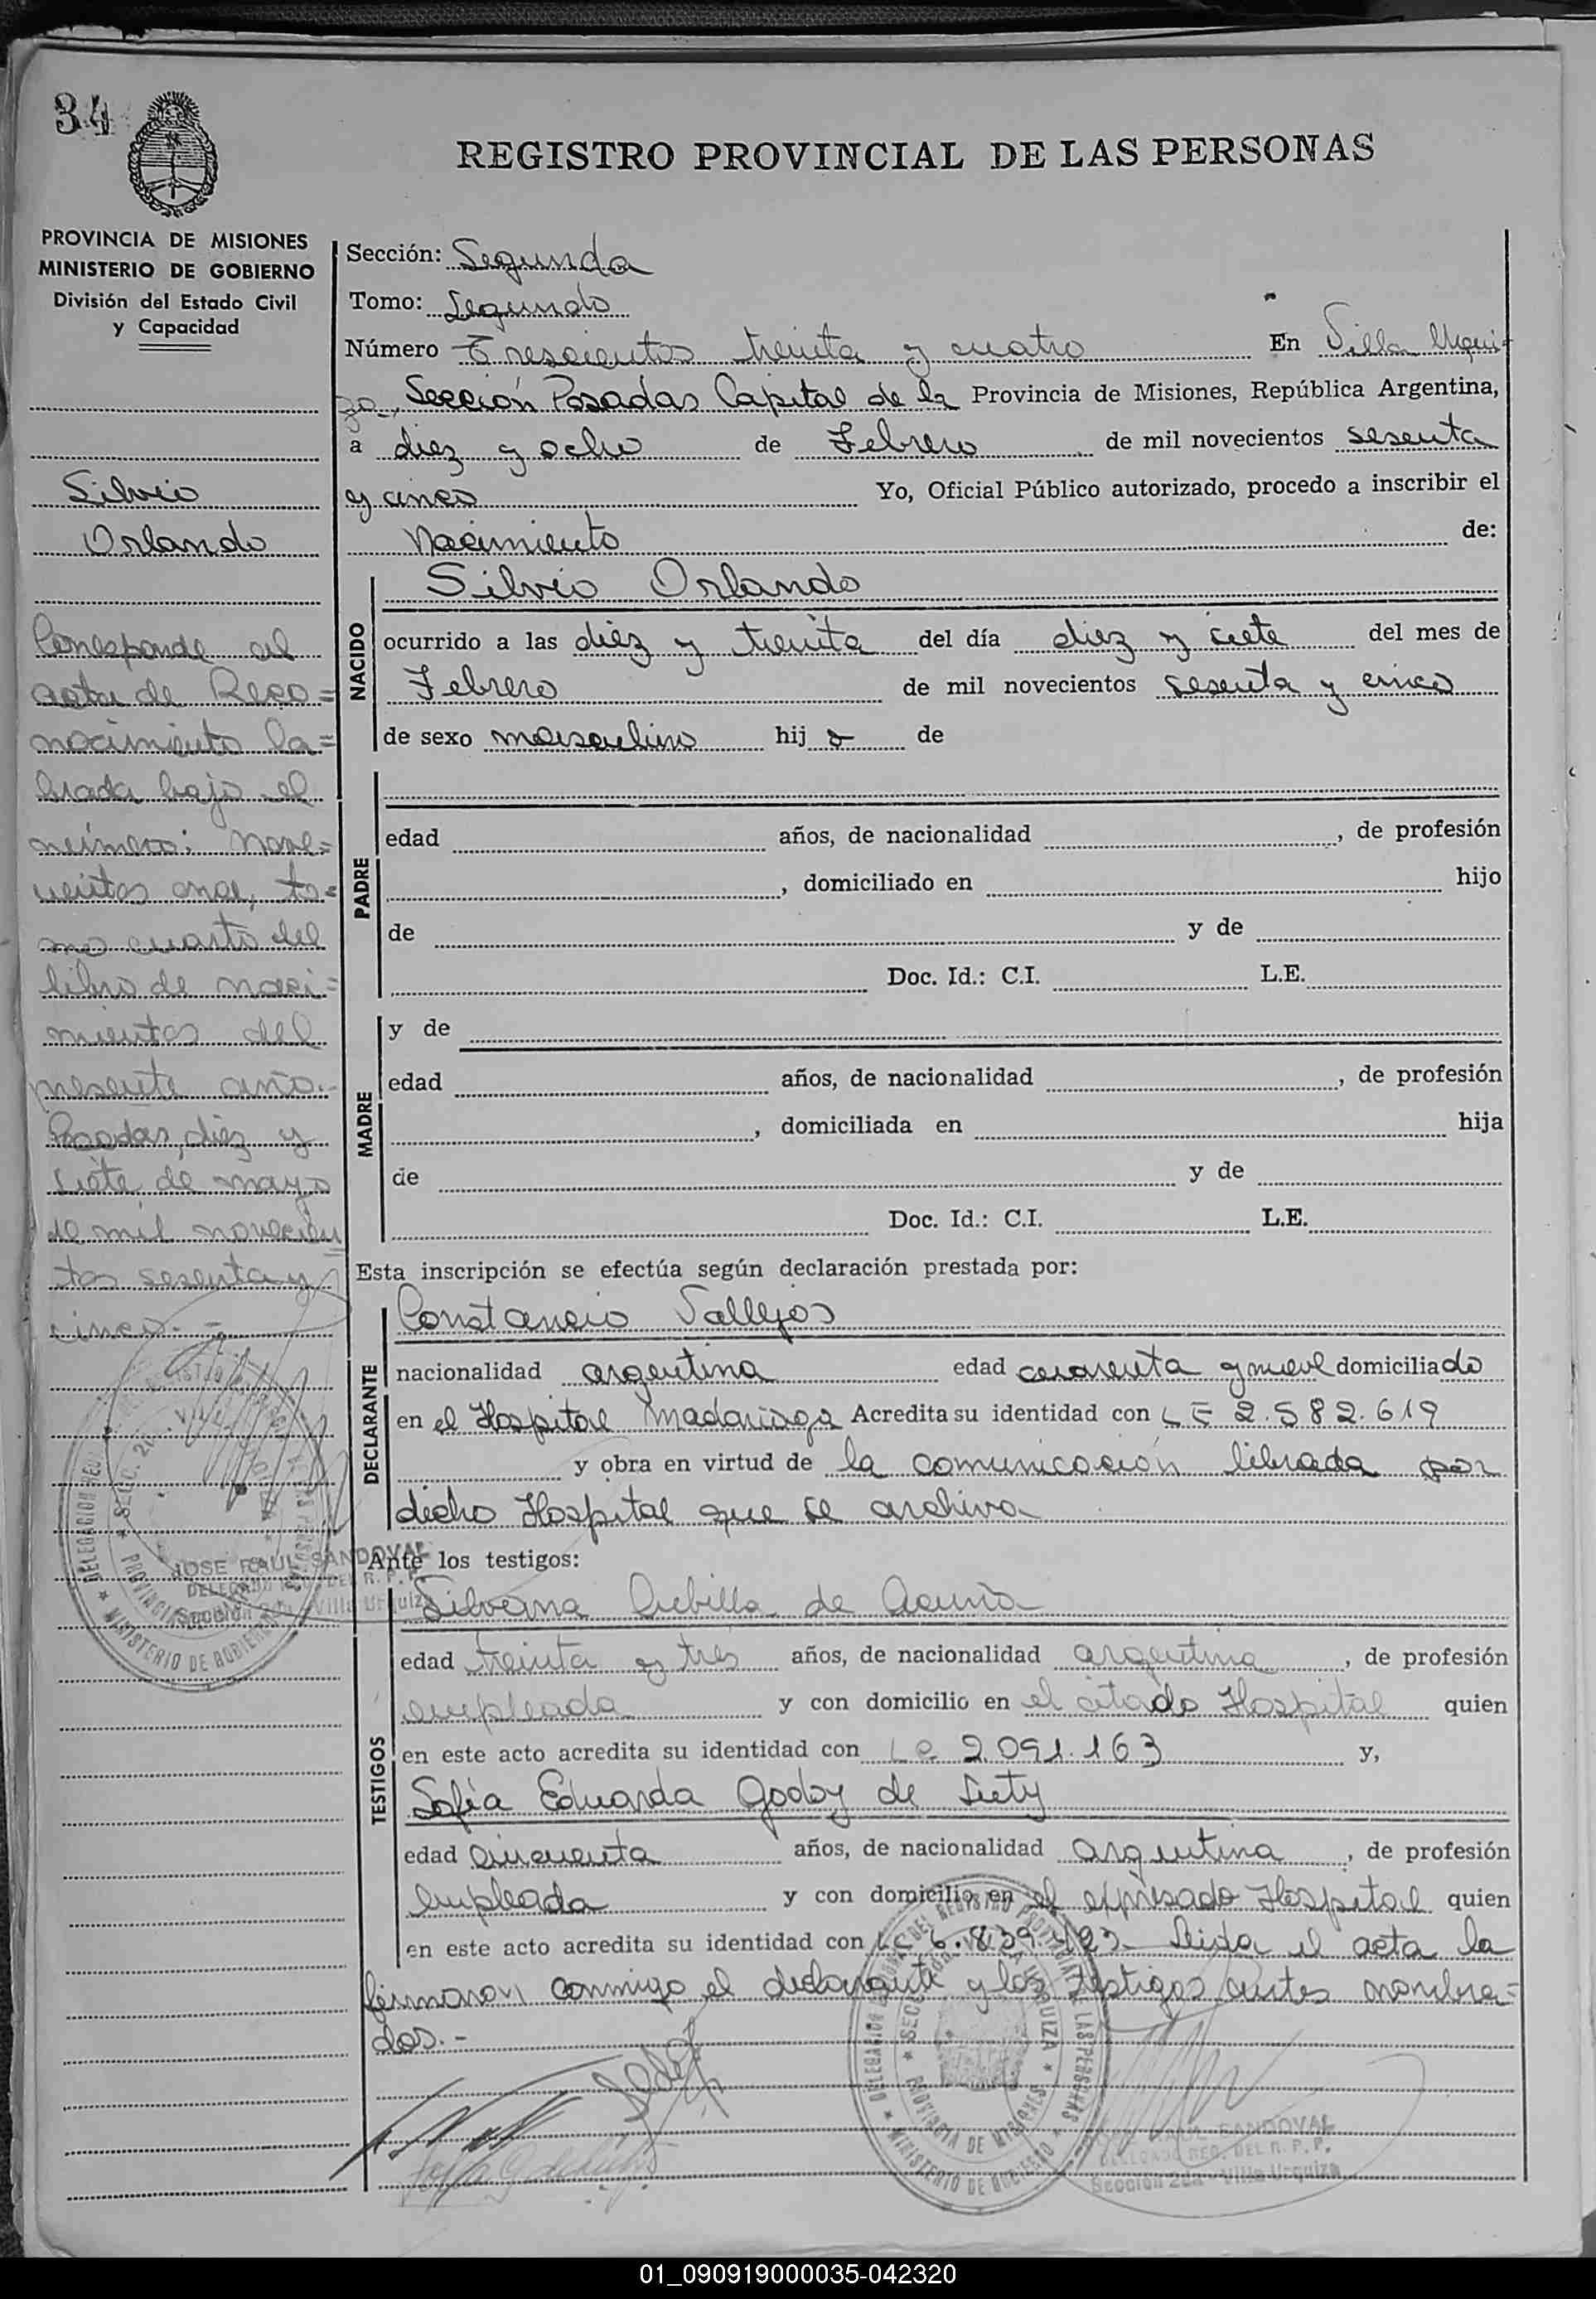 34
REGISTRO PROVINCIAL DE LAS PERSONAS
PROVINCIA DE MISIONES
MINISTERIO DE GOBIERNO
División del Estado Civil
y Capacidad
Silvio
Orlando
Corresponde al
acta de Reco=
nocimiento la=
brada bajo el
número: nove=
cientos once, to=
mo cuarto del
libro de naci=
mientos del
presente año.-
Posadas, diez y
siete de mayo
de mil novecien
tos sesenta y
cinco.-
JOSE RAUL SANDOVAL
Sección: Segunda
Tomo: Segundo
Número Trescientos treinta y cuatro En Villa Urqui-
za, Sección Posadas Capital de la Provincia de Misiones, República Argentina,
a diez y ocho de Febrero de mil novecientos sesenta
y cinco Yo, Oficial Público autorizado, procedo a inscribir el
Nacimiento de:
NACIDO
Silvio Orlando
ocurrido a las diez y treinta del día diez y siete del mes de
Febrero de mil novecientos sesenta y cinco
de sexo masculino hijo de
PADRE
edad años, de nacionalidad , de profesión
, domiciliado en hijo
de y de
Doc. Id.: C.I. L.E.
MADRE
y de
edad años, de nacionalidad , de profesión
, domiciliada en hija
de y de
Doc. Id.: C.I. L.E.
Esta inscripción se efectúa según declaración prestada por:
DECLARANTE
Constancio Vallejos
nacionalidad argentina edad cuarenta y nueve domiciliado
en el Hospital Madariaga Acredita su identidad con LE 2.582.619
y obra en virtud de la comunicación librada por
dicho Hospital que se archiva
Ante los testigos:
TESTIGOS
Silveria Cubilla de Acuña
edad treinta y tres años, de nacionalidad argentina, de profesión
empleada y con domicilio en el citado Hospital quien
en este acto acredita su identidad con LC 2.091.163 y,
Sofía Eduarda Godoy de
edad cincuenta años, de nacionalidad argentina, de profesión
empleada y con domicilio en el expresado Hospital quien
en este acto acredita su identidad con LC 6.839.493.- Leida el acta la
firmaron conmigo el declarante y los testigos antes nombra=
dos.-
DELEGACION REGIONAL DEL REGISTRO PROVINCIAL DE LAS PERSONAS
MINISTERIO DE GOBIERNO
PROVINCIA DE MISIONES
RAUL SANDOVAL
DELEGADO REG. DEL R. P. P.
Sección 2da - Villa Urquiza
01_090919000035-042320